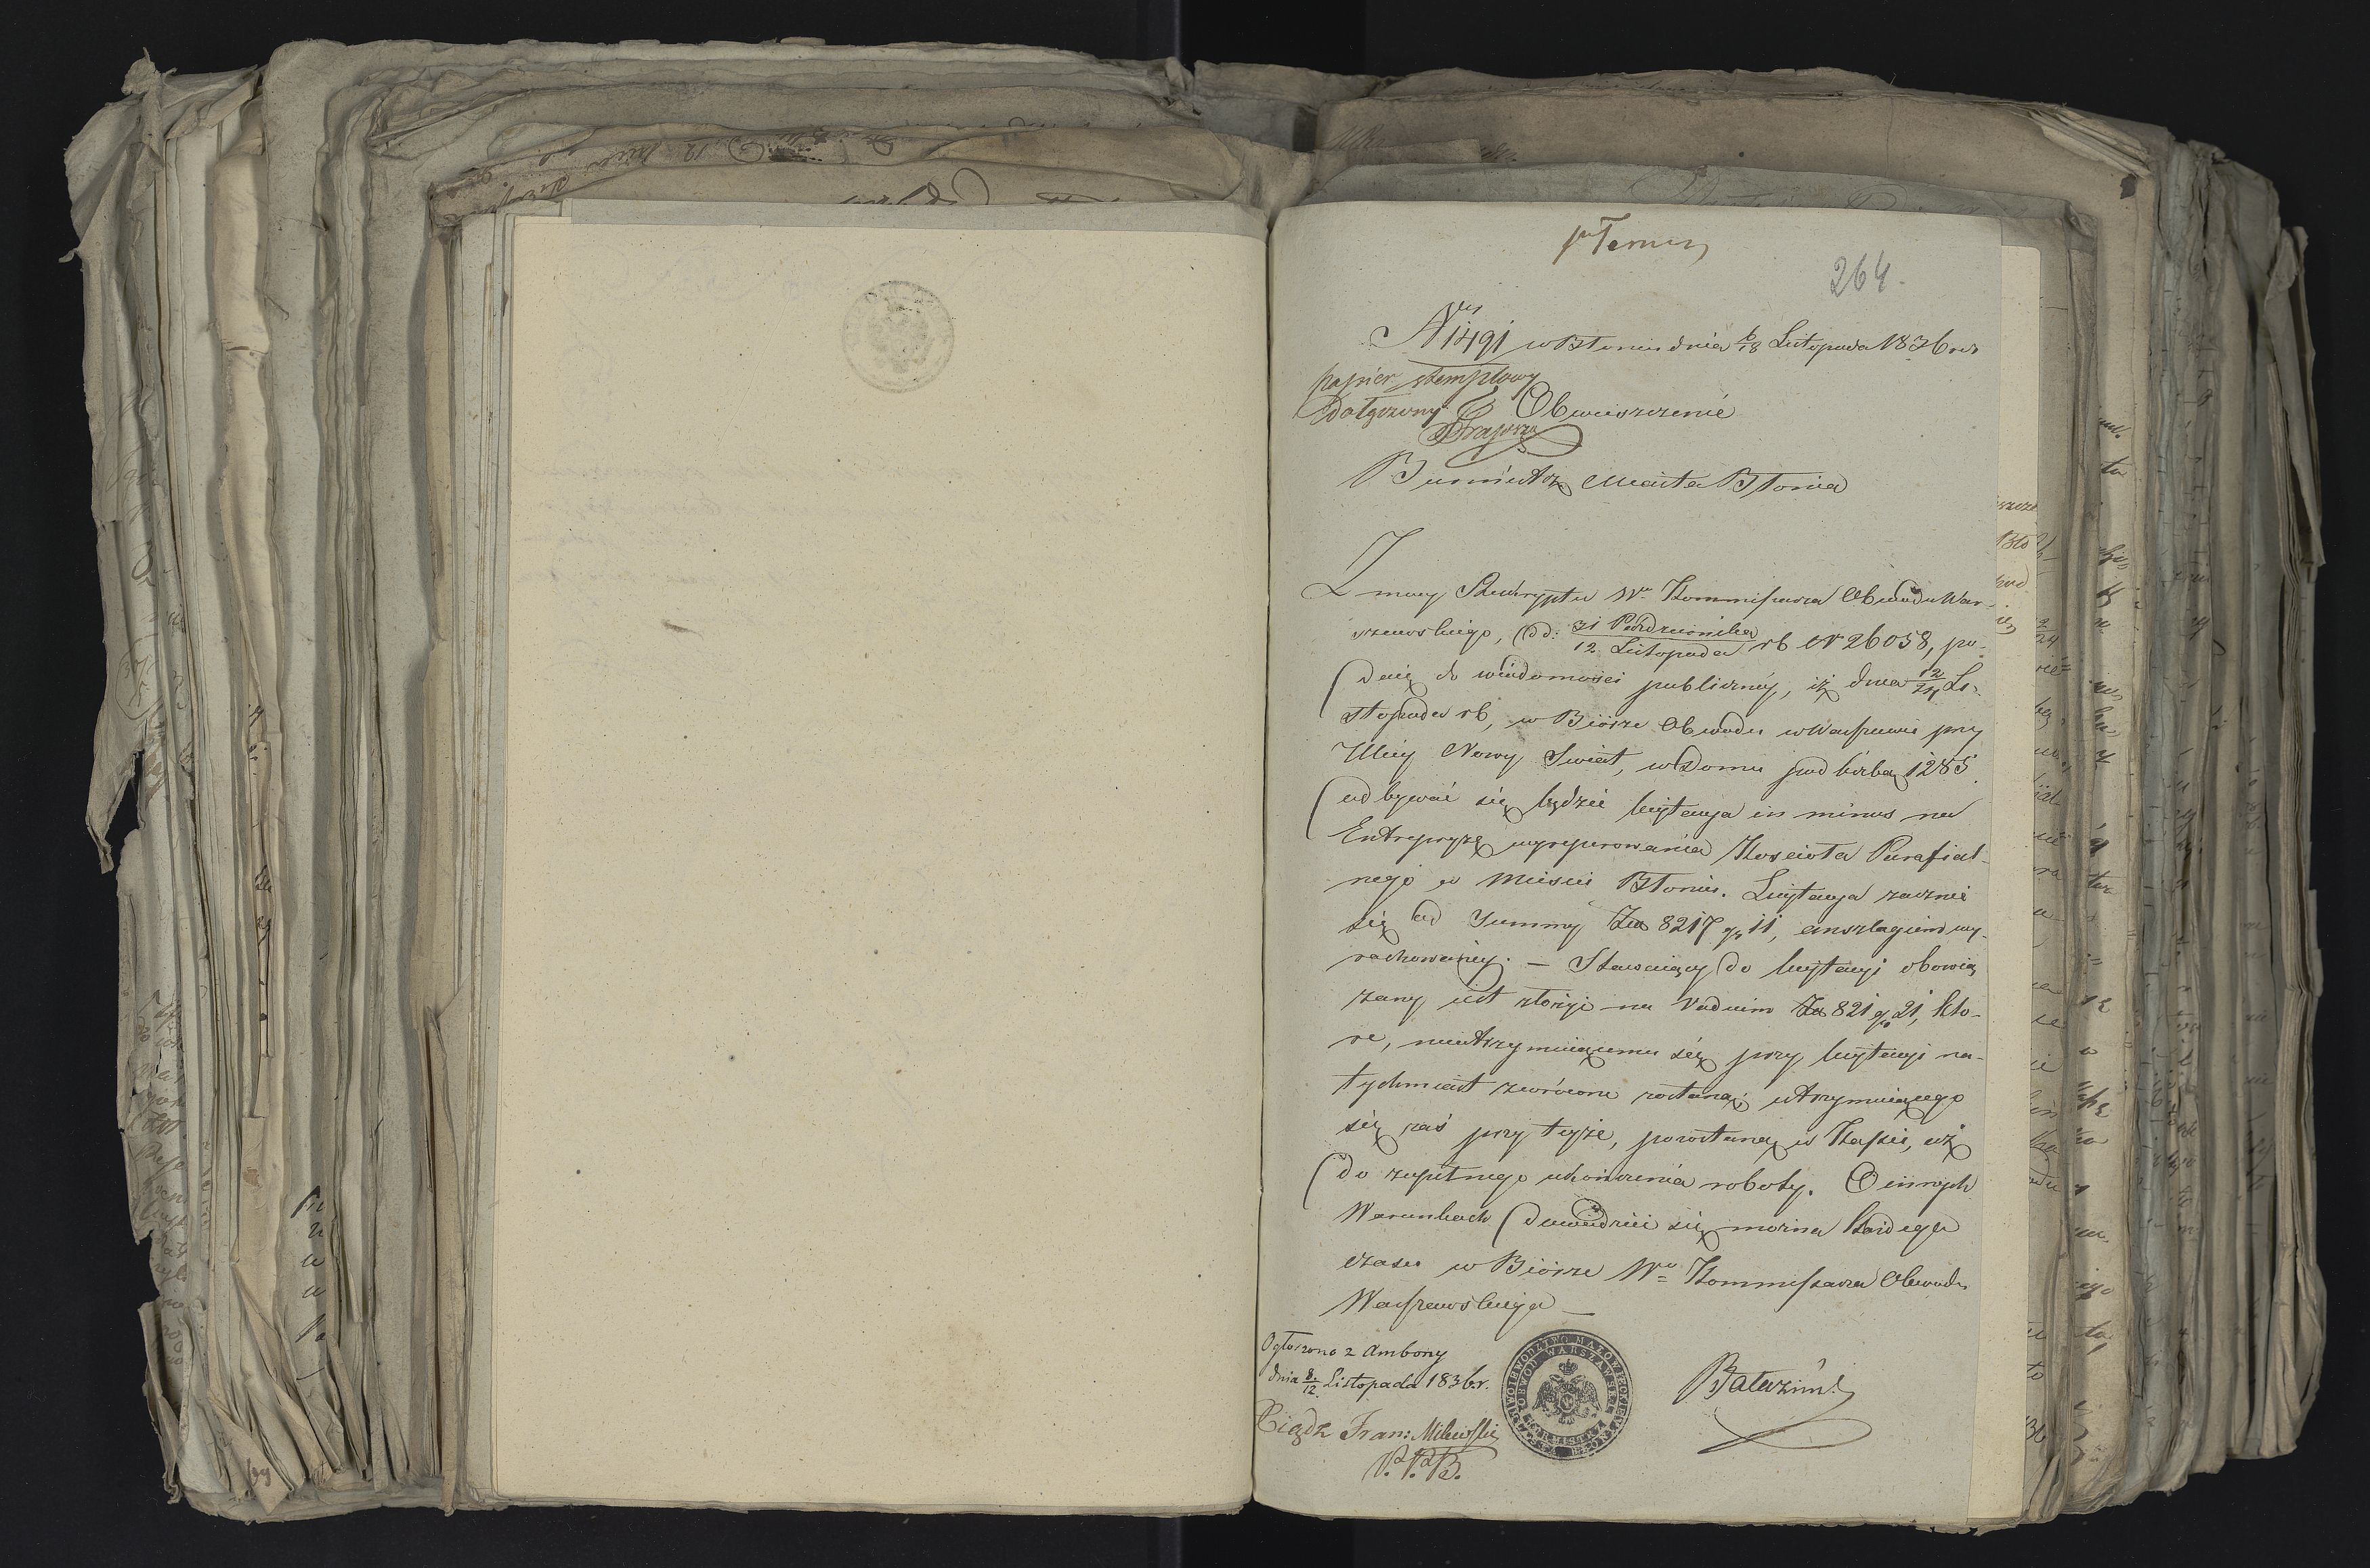 264.
Nr 1491 w Błoniu dnia 6/18 Listopada 1836 ro
papier stemplowy
dołączony
Obwieszczenie
Burmistrz Miasta Błonia
Z mocy Reskryptu Wo Kommissarza Obwodu War-
szawskiego, dd: 31 Października / 12 Listopada rb Nr 26058, po-
daię do wiadomości publicznéy, iż dnia 12/24 Li-
stopada rb, w Biórze Obwodu w Warszawie przy
Ulicy Nowy Swiat, w Domu pod liczbą 1285
odbywać się będzie licytacya in minus na
Entrepryzę wyreperowania Kościoła Parafial-
nego w Mieście Błoniu. Licytacya zacznie
się od Summy Złp 8217 gr 11, anszlagiem wy-
rachowanéy. — Stawaiący do licytacyi obowią
zany iest złożyć na Vadium Złp 821 gr 21, któ-
re, nieutrzymuiącemu się przy licytacyi na-
tychmiast zwrócone zostaną; utrzymuiącego
się zaś przy teyże, pozostaną w Kassie, aż
do zupełnego ukończenia roboty. O innych
Warunkach dowiedzieć się można każdego
czasu w Biórze Wo Kommissarza Obwodu
Warszawskiego —
Ogłoszono z Ambony
dnia 8/12 Listopada 1836 r.
Xiądz Fran: Milewski
P. P. B.
WOIEWÓDZTWO MAZOWIECKIE
OBWOD WARSZAWSKI
BURMISTRZ
MIASTA BŁONIA